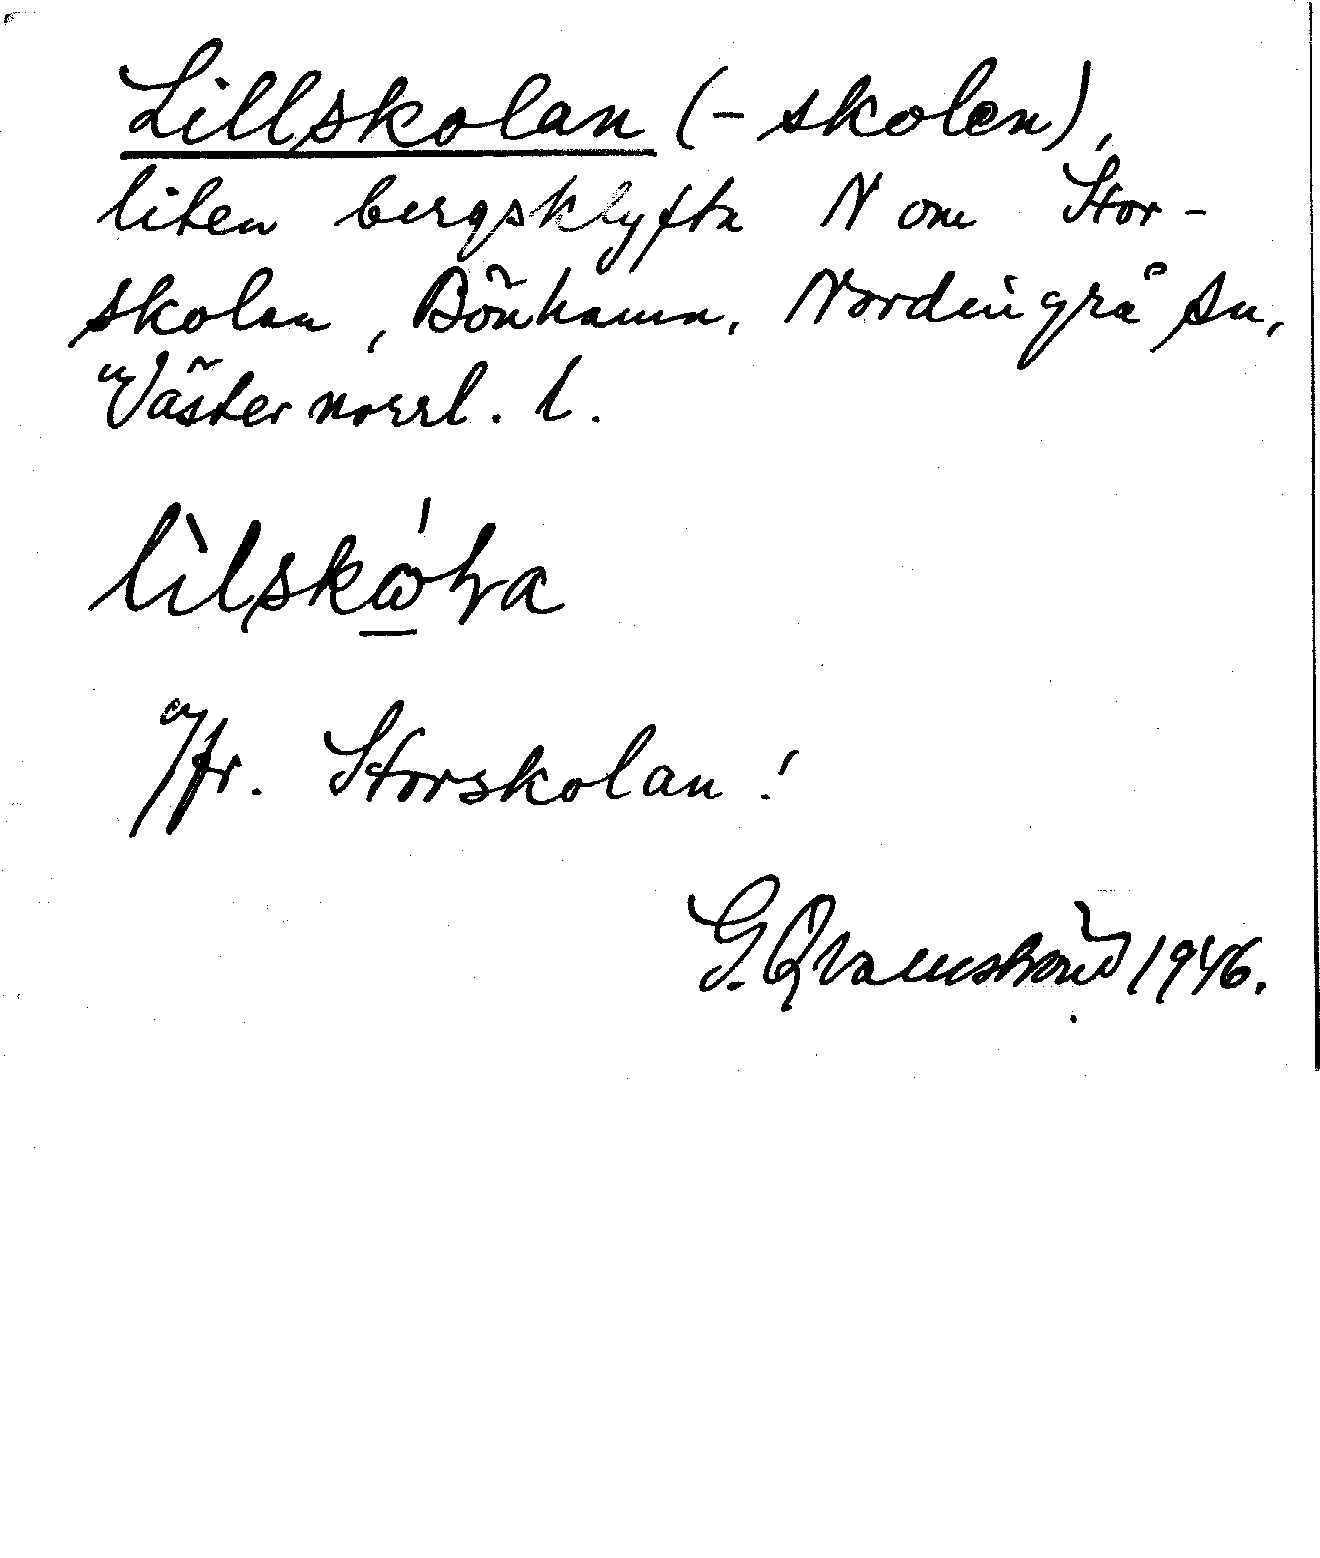 Lillskolan (-skolen),
liten bergsklyfta N om Stor-
skolan, Bönhamn, Nordingrå sn,
Västernorrl. l.
Jfr. Storskolan!
G. Qvarnström 1946.